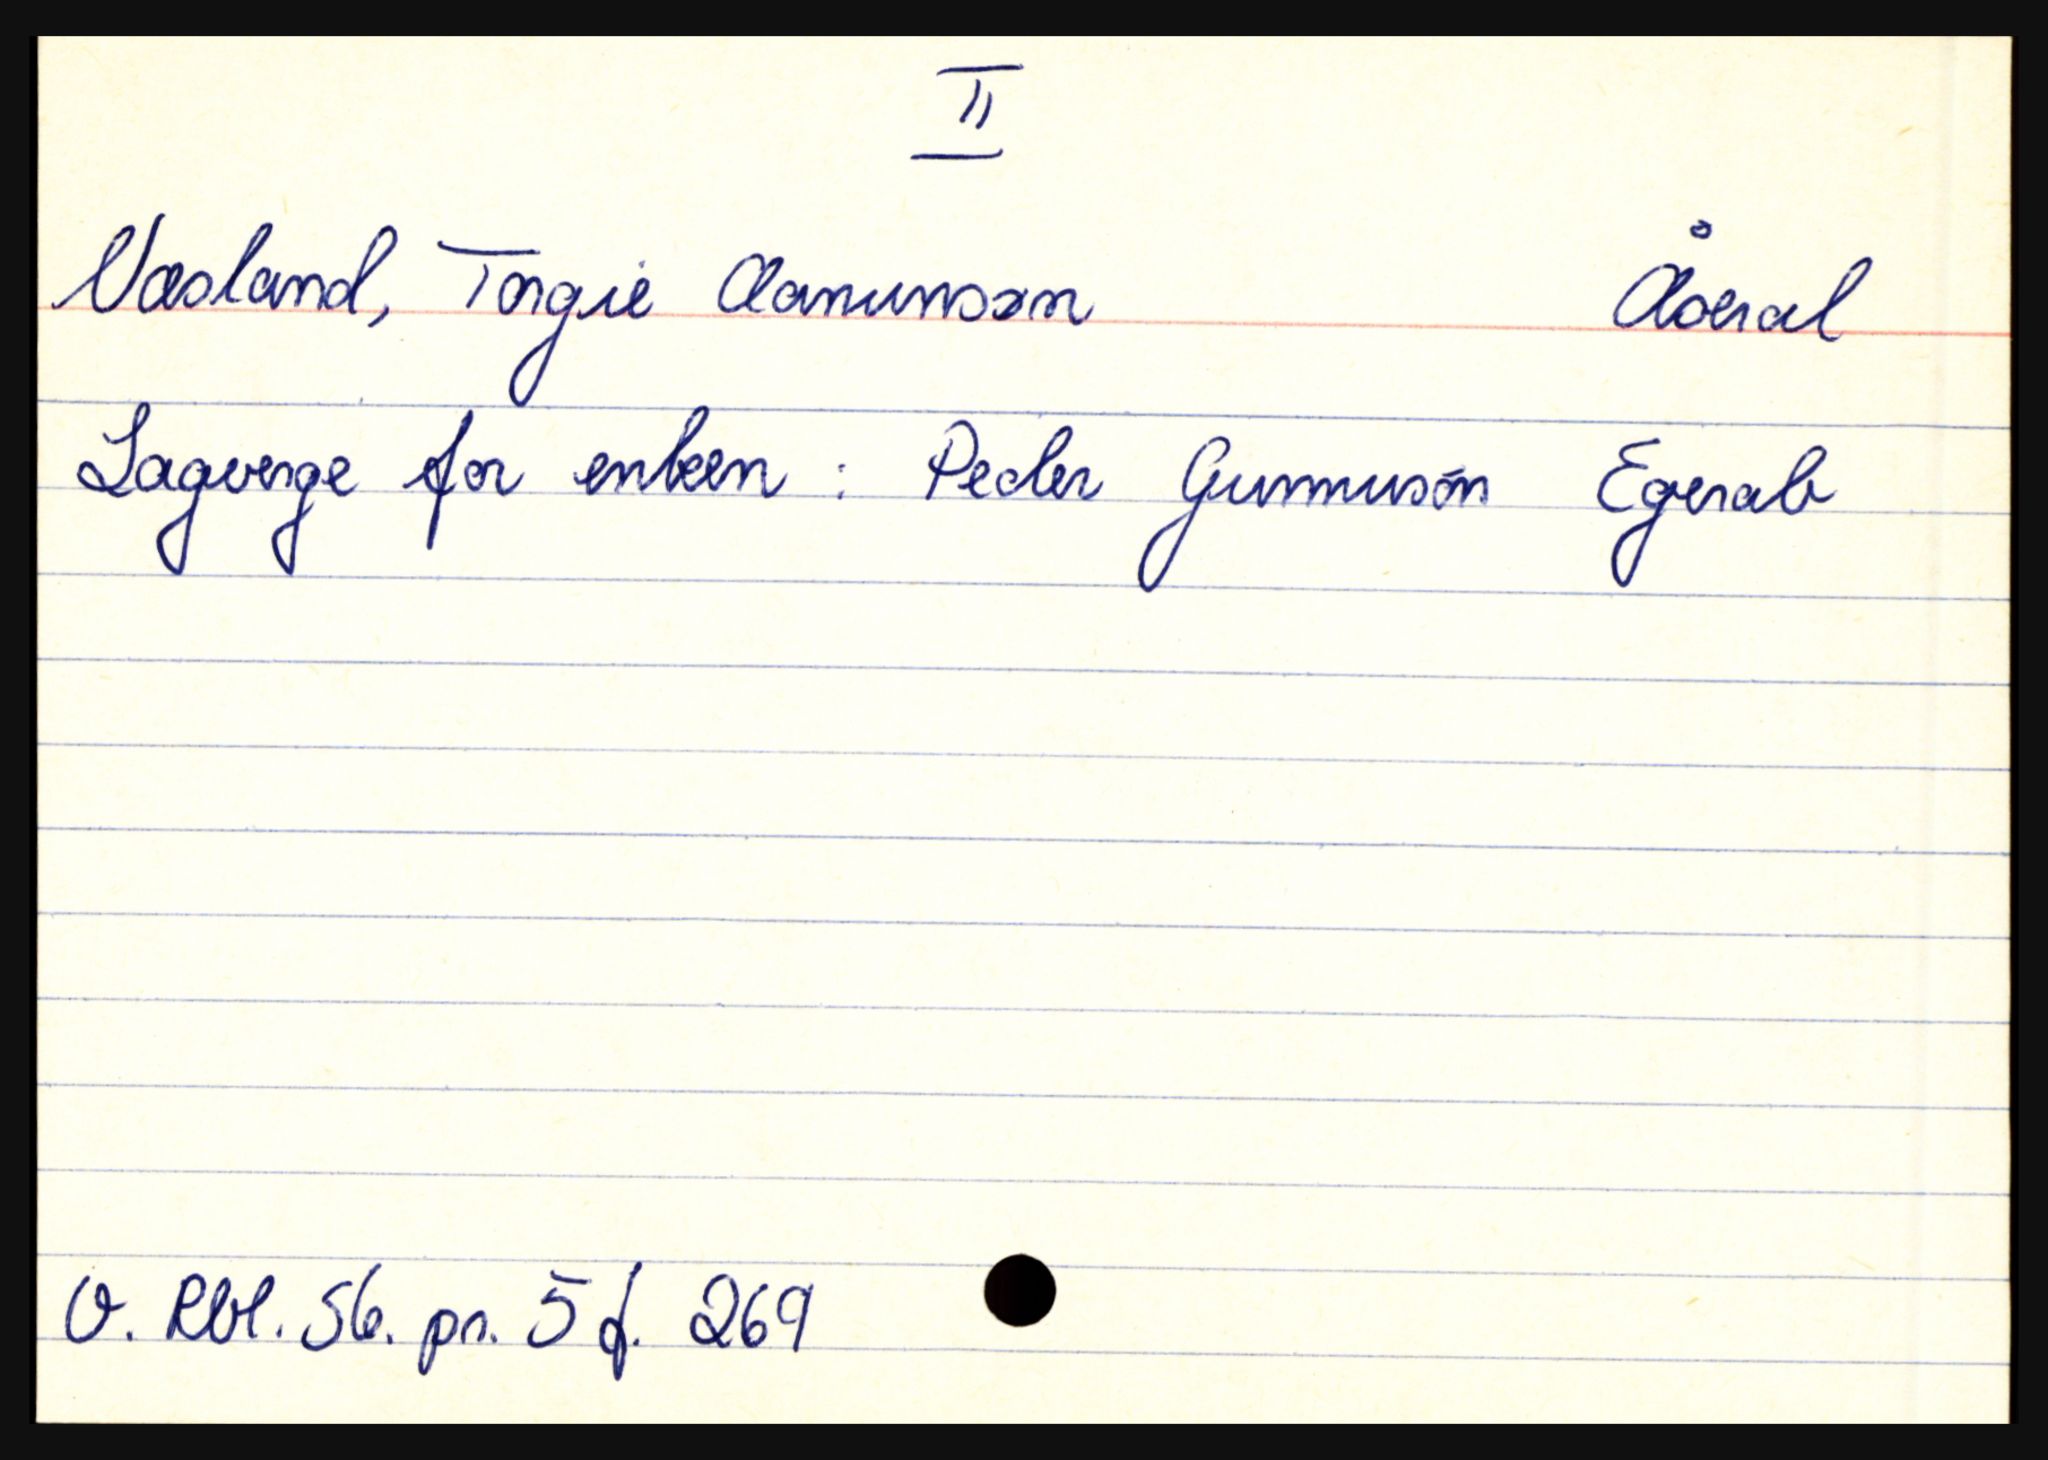 II
Væsland, Torgie Aanunsøn Åseral
Lagverge for enken : Peder Gunnusøn Egerab
V. Rbl. 56. pr. 5 f. 269